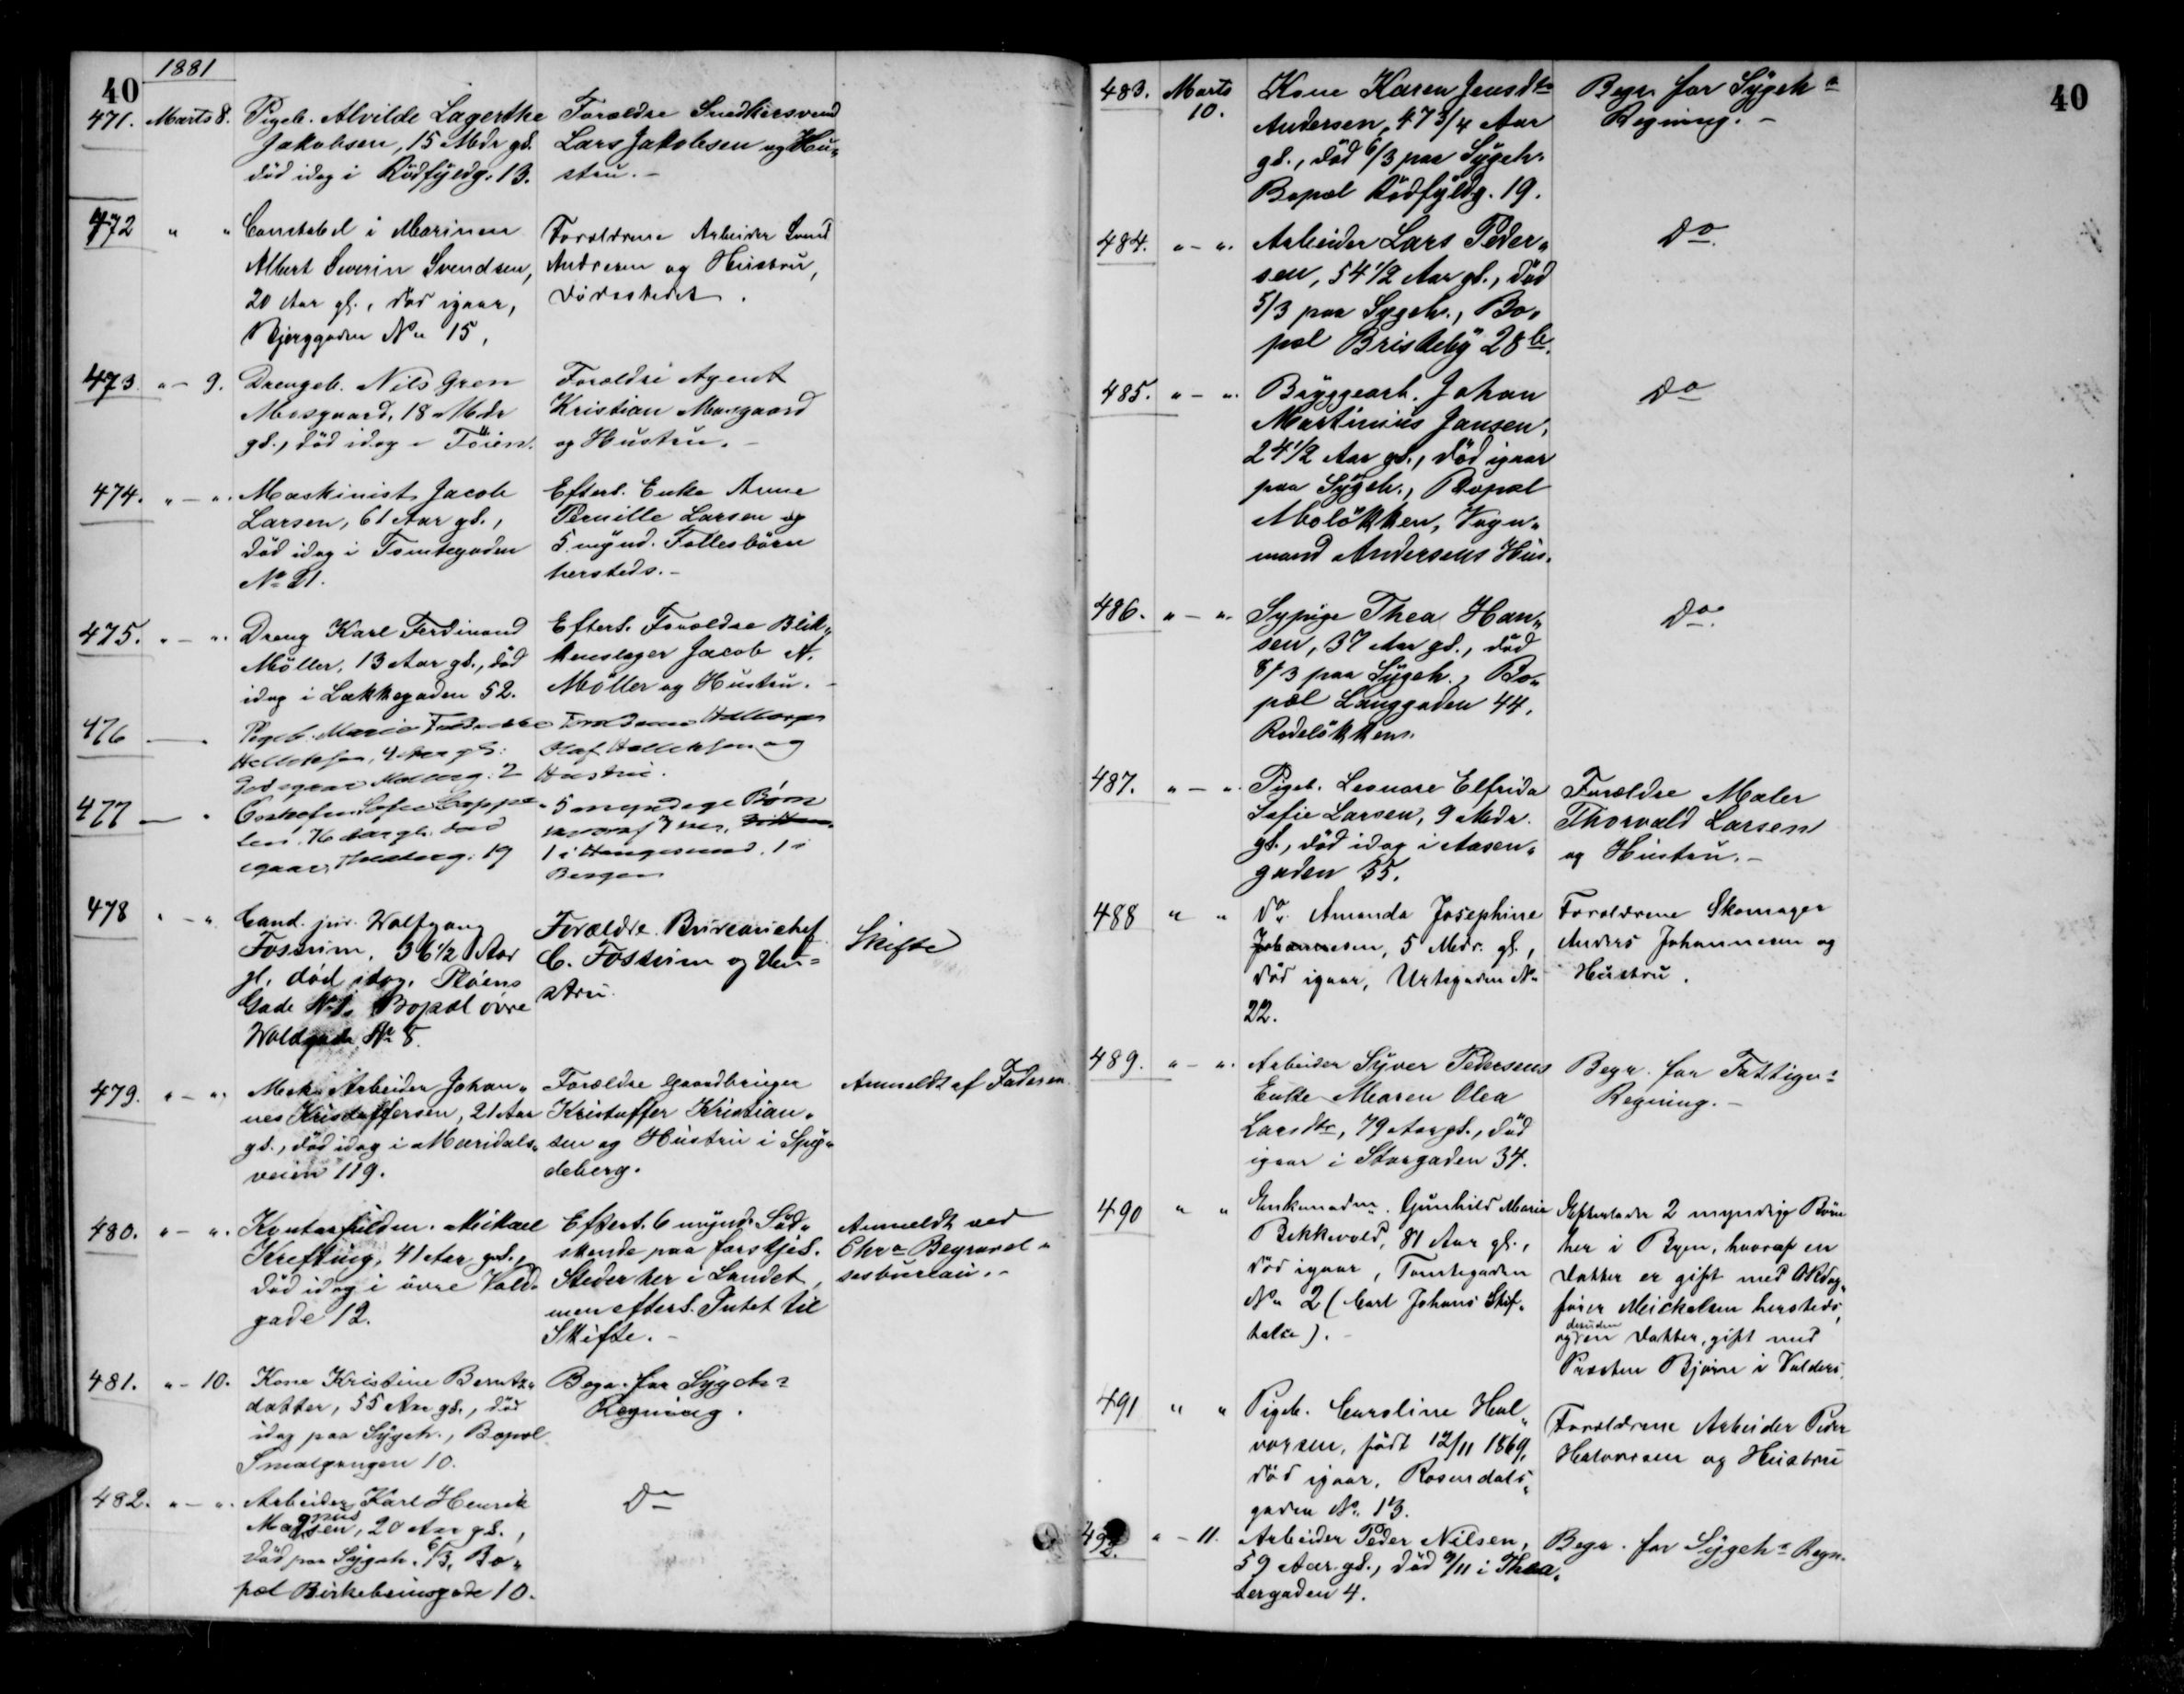 40
1881
471. Marts 8. Pigeb. Alvilde Lagerthe
Jakobsen, 15 Mdr gl.
död idag i Rödfyldg. 13.
Forældre Snedkersvend
Lars Jakobsen og Hu„
stru. –
472 " " Constabel i Marinen
Albert Severin Svendsen,
20 Aar gl., død igaar,
Bjerggaden No 15,
Forældrene Arbeider Svend
Andresen og Hustru,
Dødsstedet.
473. " – 9. Drengeb. Nils Gren
Mosgaard, 18 Mdr
gl., död idag i Töien.
Forældre Agent
Kristian Mosgaard
og Hustru. –
474. " – ". Maskinist Jacob
Larsen, 61 Aar gl.,
död idag i Tomtegaden
No 21.
Efterl. Enke Anne
Pernille Larsen og
5 mynd. Fællesbörn
hersteds. –
475. " – ". Dreng Karl Ferdinand
Möller, 13 Aar gl., död
idag i Lakkegaden 52.
Efterl. Forældre Blik„
kenslager Jacob A.
Möller og Hustru. –
476 — " Pigeb. Marie
4 Aar gl.
død igaar 2
Forældrene
Olaf og
Hustru.
477 — " Sofie Cappe„
len, 76 Aar gl. død
igaar, 19
5 myndige Børn
hvoraf her,
1 i Haugesund, 1 i
Bergen
478 " – " Cand. jur. Wolfgang
Fossum, 36 1/2 Aar
gl. död idag, Pløens
Gade No 1. Bopæl övre
Voldgade No 8.
Forældre Bureauchef
C. Fossum og Hu=
stru.
Skifte
479. " – ". Mek. Arbeider Johan„
nes Kristoffersen, 21 Aar
gl., död idag i Maridals„
veien 119.
Forældre Gaardbruger
Kristoffer Kristian„
sen og Hustru i Spy„
deberg.
Anmeldt af Faderen.
480. " – ". Kontorfuldm. Mikael
Krefting, 41 Aar gl.,
död idag i övre Vold„
gade 12.
Efterl. 6 mynd. Sød„
skende paa forskjel.
Steder her i Landet,
men efterl. Intet til
Skifte. –
Anmeldt ved
Chra Begravel„
sesbureau. –
481. " – 10. Kone Kristine Berntz„
datter, 55 Aar gl., död
idag paa Sygeh., Bopæl
Smalgangen 10.
Begr. for Sygehs
Regning.
482. " – ". Arbeider Karl Henrik
Magnussen, 20 Aar gl.,
död paa Sygeh. 6/3, Bo„
pæl Birkebeinergade 10.
Do
40
483. Marts
10.
Kone Karen Jensdtr
Andersen, 47 3/4 Aar
gl., död 6/3 paa Sygeh.
Bopæl Rödfyldg. 19.
Begr. for Sygehs
Regning. –
484. " – ". Arbeider Lars Peder„
sen, 54 1/2 Aar gl., död
5/3 paa Sygeh., Bo„
pæl Briskeby 28 b.
Do.
485. " – ". Bryggearb. Johan
Martinius Jansen,
24 1/2 Aar gl., död igaar
paa Sygeh., Bopæl
Molökken, Vogn„
mand Andersens Hus.
Do
486. " – ". Sypige Thea Han„
sen, 37 Aar gl., död
8/3 paa Sygeh., Bo„
pæl Langgaden 44,
Rodelökken.
Do.
487. " – ". Pigeb. Leonore Elfrida
Sofie Larsen, 9 Mdr.
gl., död idag i Aasen„
gaden 35.
Forældre Maler
Thorvald Larsen
og Hustru. –
488 " " Do. Amanda Josephine
Johannesen, 5 Mdr. gl.,
død igaar, Urtegaden No
22.
Forældrene Skomager
Anders Johannesen og
Hustru.
489. " – ". Arbeider Syver Pedersens
Enke Maren Olea
Larsdtr, 79 Aar gl., död
igaar i Storgaden 34.
Begr. for Fattigvs
Regning. –
490 " " Enkemadm. Gunhild Marie
Bekkevold, 81 Aar gl.,
død igaar, Tomtegaden
No 2 (Carl Johans Stif„
telse). –
Efterlader 2 myndige Börn
her i Byen, hvoraf en
Datter er gift med
Meickelsen hersteds,
desuden
og en Datter, gift med
Præsten Bjørn i Valders.
491 " " Pigeb. Caroline Hal„
vorsen, født 12/11 1869,
død igaar, Rosendals„
gaden No. 13.
Forældrene Arbeider Peder
Halvorsen og Hustru
492. " – 11. Arbeider Peder Nilsen,
59 Aar gl., død 9/11 i Thea„
tergaden 4.
Begr. for Sygehs Regn.